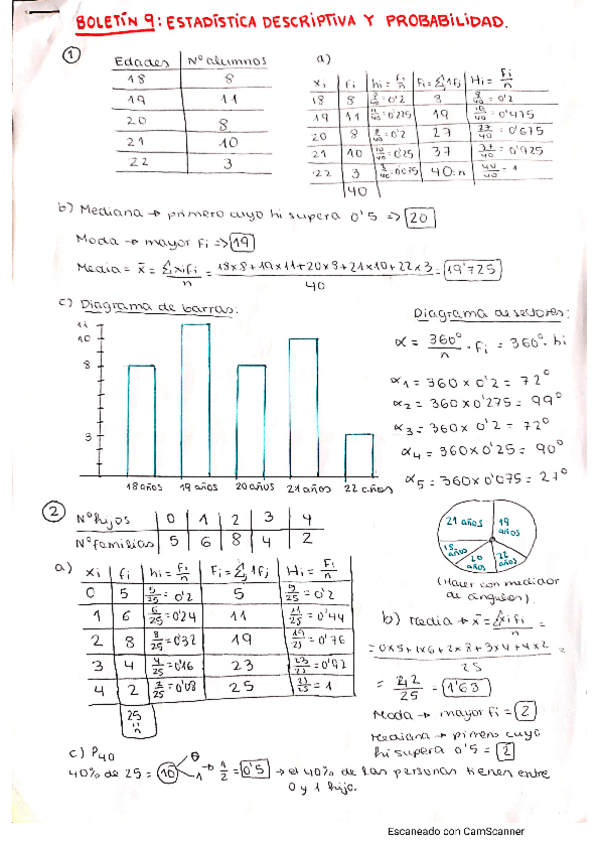 BOLETÍN 9: ESTADÍSTICA DESCRIPTIVA Y PROBABILIDAD.
1
Edades Nº alumnos
18 8
19 11
20 8
21 10
22 3
a)
xi fi hi = fi/n Fi = Σfj Hi = Fi/n
18 8 8/40 = 0'2 8 8/40 = 0'2
19 11 11/40 = 0'275 19 19/40 = 0'475
20 8 8/40 = 0'2 27 27/40 = 0'675
21 10 10/40 = 0'25 37 37/40 = 0'925
22 3 3/40 = 0'075 40=n 40/40 = 1
40
b) Mediana → primero cuyo hi supera 0'5 => 20
Moda → mayor fi => 19
Media = x̄ = Σxifi/n = 18x8+19x11+20x8+21x10+22x3/40 = 19'725
c) Diagrama de barras:
11
10
8
3
18 años 19 años 20 años 21 años 22 años
Diagrama de sectores:
α = 360º/n · fi = 360º · hi
α1 = 360 x 0'2 = 72º
α2 = 360 x 0'275 = 99º
α3 = 360 x 0'2 = 72º
α4 = 360 x 0'25 = 90º
α5 = 360 x 0'075 = 27º
21 años 19 años
18 años 20 años 22 años
(Hacer con medidor de ángulos).
2
Nº hijos 0 1 2 3 4
Nº familias 5 6 8 4 2
a)
xi fi hi = fi/n Fi = Σfj Hi = Fi/n
0 5 5/25 = 0'2 5 5/25 = 0'2
1 6 6/25 = 0'24 11 11/25 = 0'44
2 8 8/25 = 0'32 19 19/25 = 0'76
3 4 4/25 = 0'16 23 23/25 = 0'92
4 2 2/25 = 0'08 25 = 1
25
=
n
b) Media → x̄ = Σxifi/n =
= 0x5+1x6+2x8+3x4+4x2/25 =
= /25 = 1'63
Moda → mayor fi = 2
Mediana → primero cuyo
hi supera 0'5 = 2
c) P40
40% de 25 = 10 0 1 → 1/2 = 0'5 → el 40% de las personas tienen entre
0 y 1 hijo.
Escaneado con CamScanner